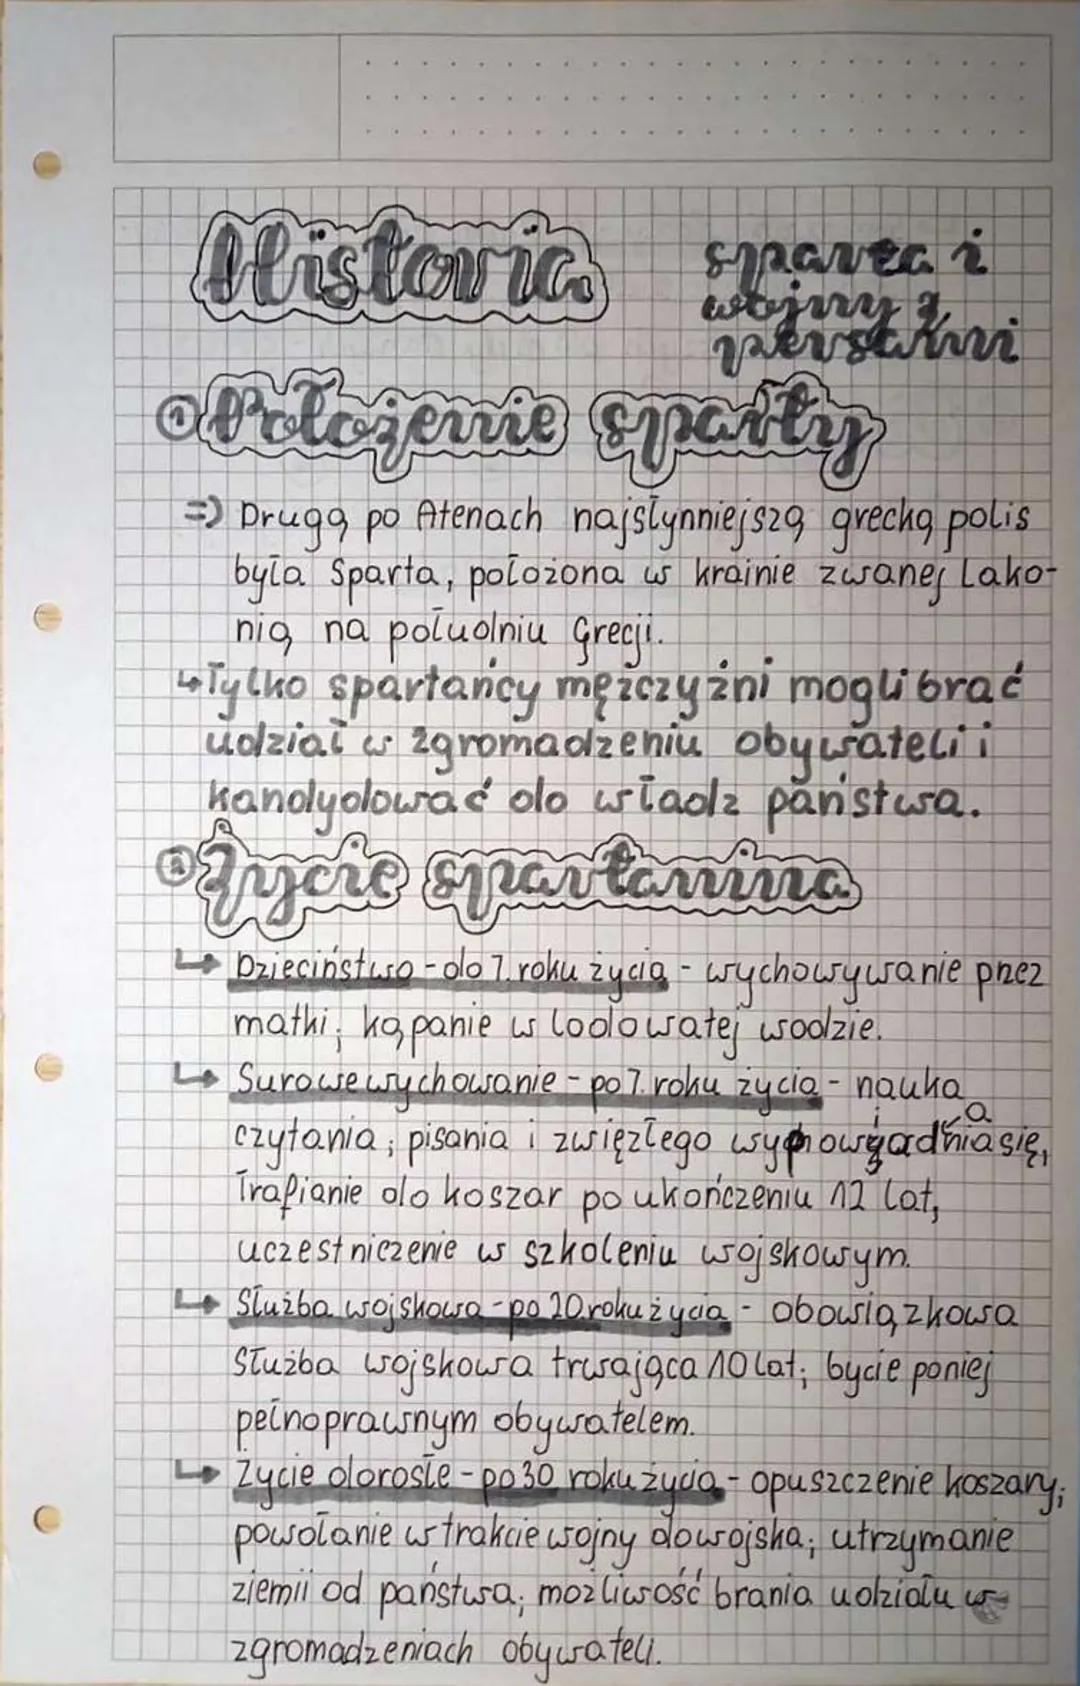 Historia
sparta i
wojny z
persami
① Położenie sparty
=> Drugą po Atenach najsłynniejszą grecką polis
była Sparta, położona w krainie zwanej Lako-
nią na południu Grecji.
↳ Tylko spartańcy mężczyźni mogli brać
udział w zgromadzeniu obywateli i
kandydować do władz państwa.
② Życie spartanina
↳ Dzieciństwo - do 7. roku życia - wychowywanie przez
matki; kąpanie w lodowatej wodzie.
↳ Surowe wychowanie - po 7. roku życia - nauka
czytania; pisania i zwięzłego się,
Trafianie do koszar po ukończeniu 12 lat,
uczestniczenie w szkoleniu wojskowym.
↳ Służba wojskowa - po 20. roku życia - obowiązkowa
Służba wojskowa trwająca 10 lat; bycie poniej
pełnoprawnym obywatelem.
↳ Życie dorosłe - po 30 roku życia - opuszczenie koszary;
powołanie w trakcie wojny do wojska; utrzymanie
ziemii od państwa; możliwość brania udziału w
zgromadzeniach obywateli.